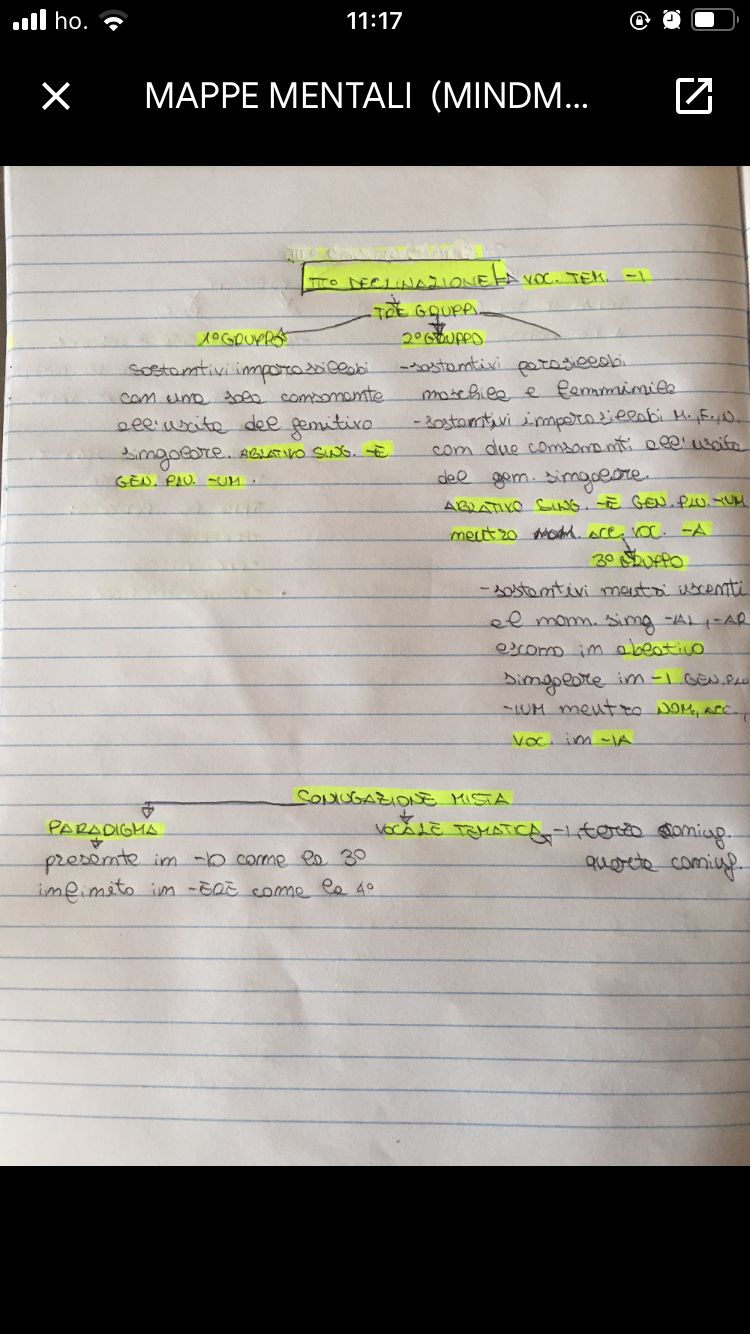 ho.
11:17
MAPPE MENTALI (MINDM...
IIIº DECLINAZIONE → VOC. TEM. -I
TRE GRUPPI
1º GRUPPO
sostantivi imparasillabi
con una sola consonante
all'uscita del genitivo
singolare. ABLATIVO SING. -E
GEN. PLU. -UM.
2º GRUPPO
-sostantivi parasillabi
maschile e femminile
-sostantivi imparasillabi M., F., N.
con due consonanti all'uscita
del gen. singolare.
ABLATIVO SING. -E GEN. PLU. -IUM
neutro NOM. ACC. VOC. -A
3º GRUPPO
-sostantivi neutri uscenti
al nom. sing -AL, -AR
escono in ablativo
singolare in -I GEN. PLU
-IUM neutro NOM, ACC.,
VOC. in -IA
CONIUGAZIONE MISTA
PARADIGMA
presente in -IO come la 3º
infinito in -ĔRE come la 4º
VOCALE TEMATICA → -I, terza coniug.
quarta coniug.